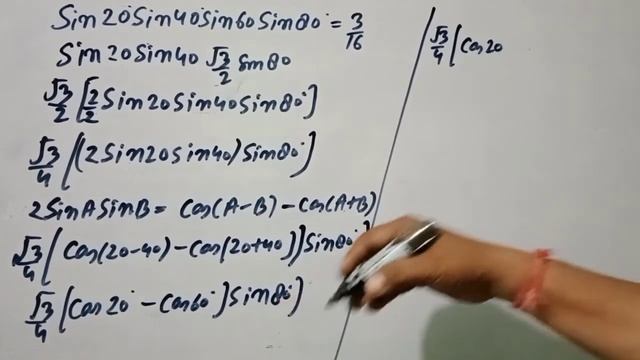 Sin20°Sin40°Sin60°Sin80° = 3/16
Sin20Sin40 √3/2 Sin80
√3/2 [2/2 Sin20Sin40Sin80°]
√3/4 [(2Sin20Sin40)Sin80°]
2SinASinB = Cos(A-B) - Cos(A+B)
√3/4 [Cos(20-40) - Cos(20+40)]Sin80°]
√3/4 [Cos20° - Cos60°]Sin80°]
√3/4 [Cos20